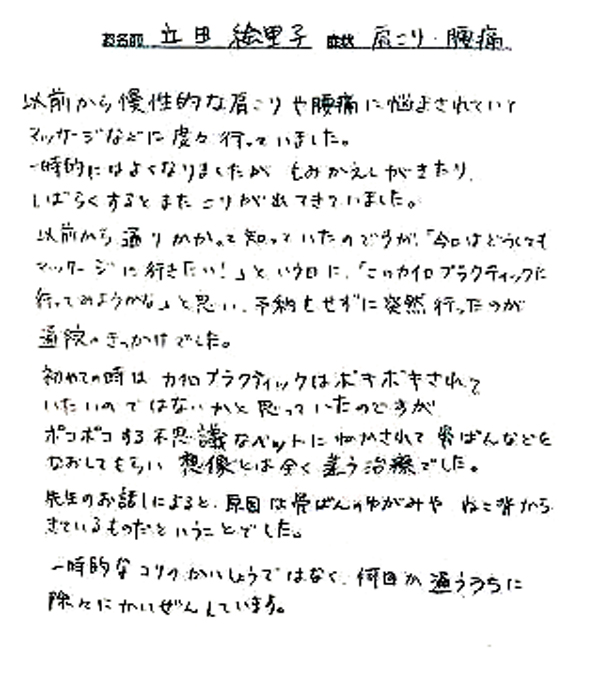 お名前 立田 絵里子 症状 肩こり・腰痛
以前から慢性的な肩こりや腰痛に悩まされていて
マッサージなどに度々行っていました。
一時的にはよくなりましたが もみかえしがきたり、
しばらくするとまた こりが出てきていました。
以前から通りかかって知っていたのですが、「今日はどうしても
マッサージに行きたい!」という日に、「このカイロプラクティックに
行ってみようかな」と思い、予約もせずに突然行ったのが
通院のきっかけでした。
初めての時は カイロプラクティックはボキボキされて
いたいのではないかと思っていたのですが
ポコポコする不思議なベットにねかされて 骨ばんなどを
なおしてもらい 想像とは全く違う治療でした。
先生のお話しによると、原因は骨ばんのゆがみや ねこ背から
きているものだということでした。
一時的なコリのかいしょうではなく、何回か通ううちに
除々にかいぜんしています。